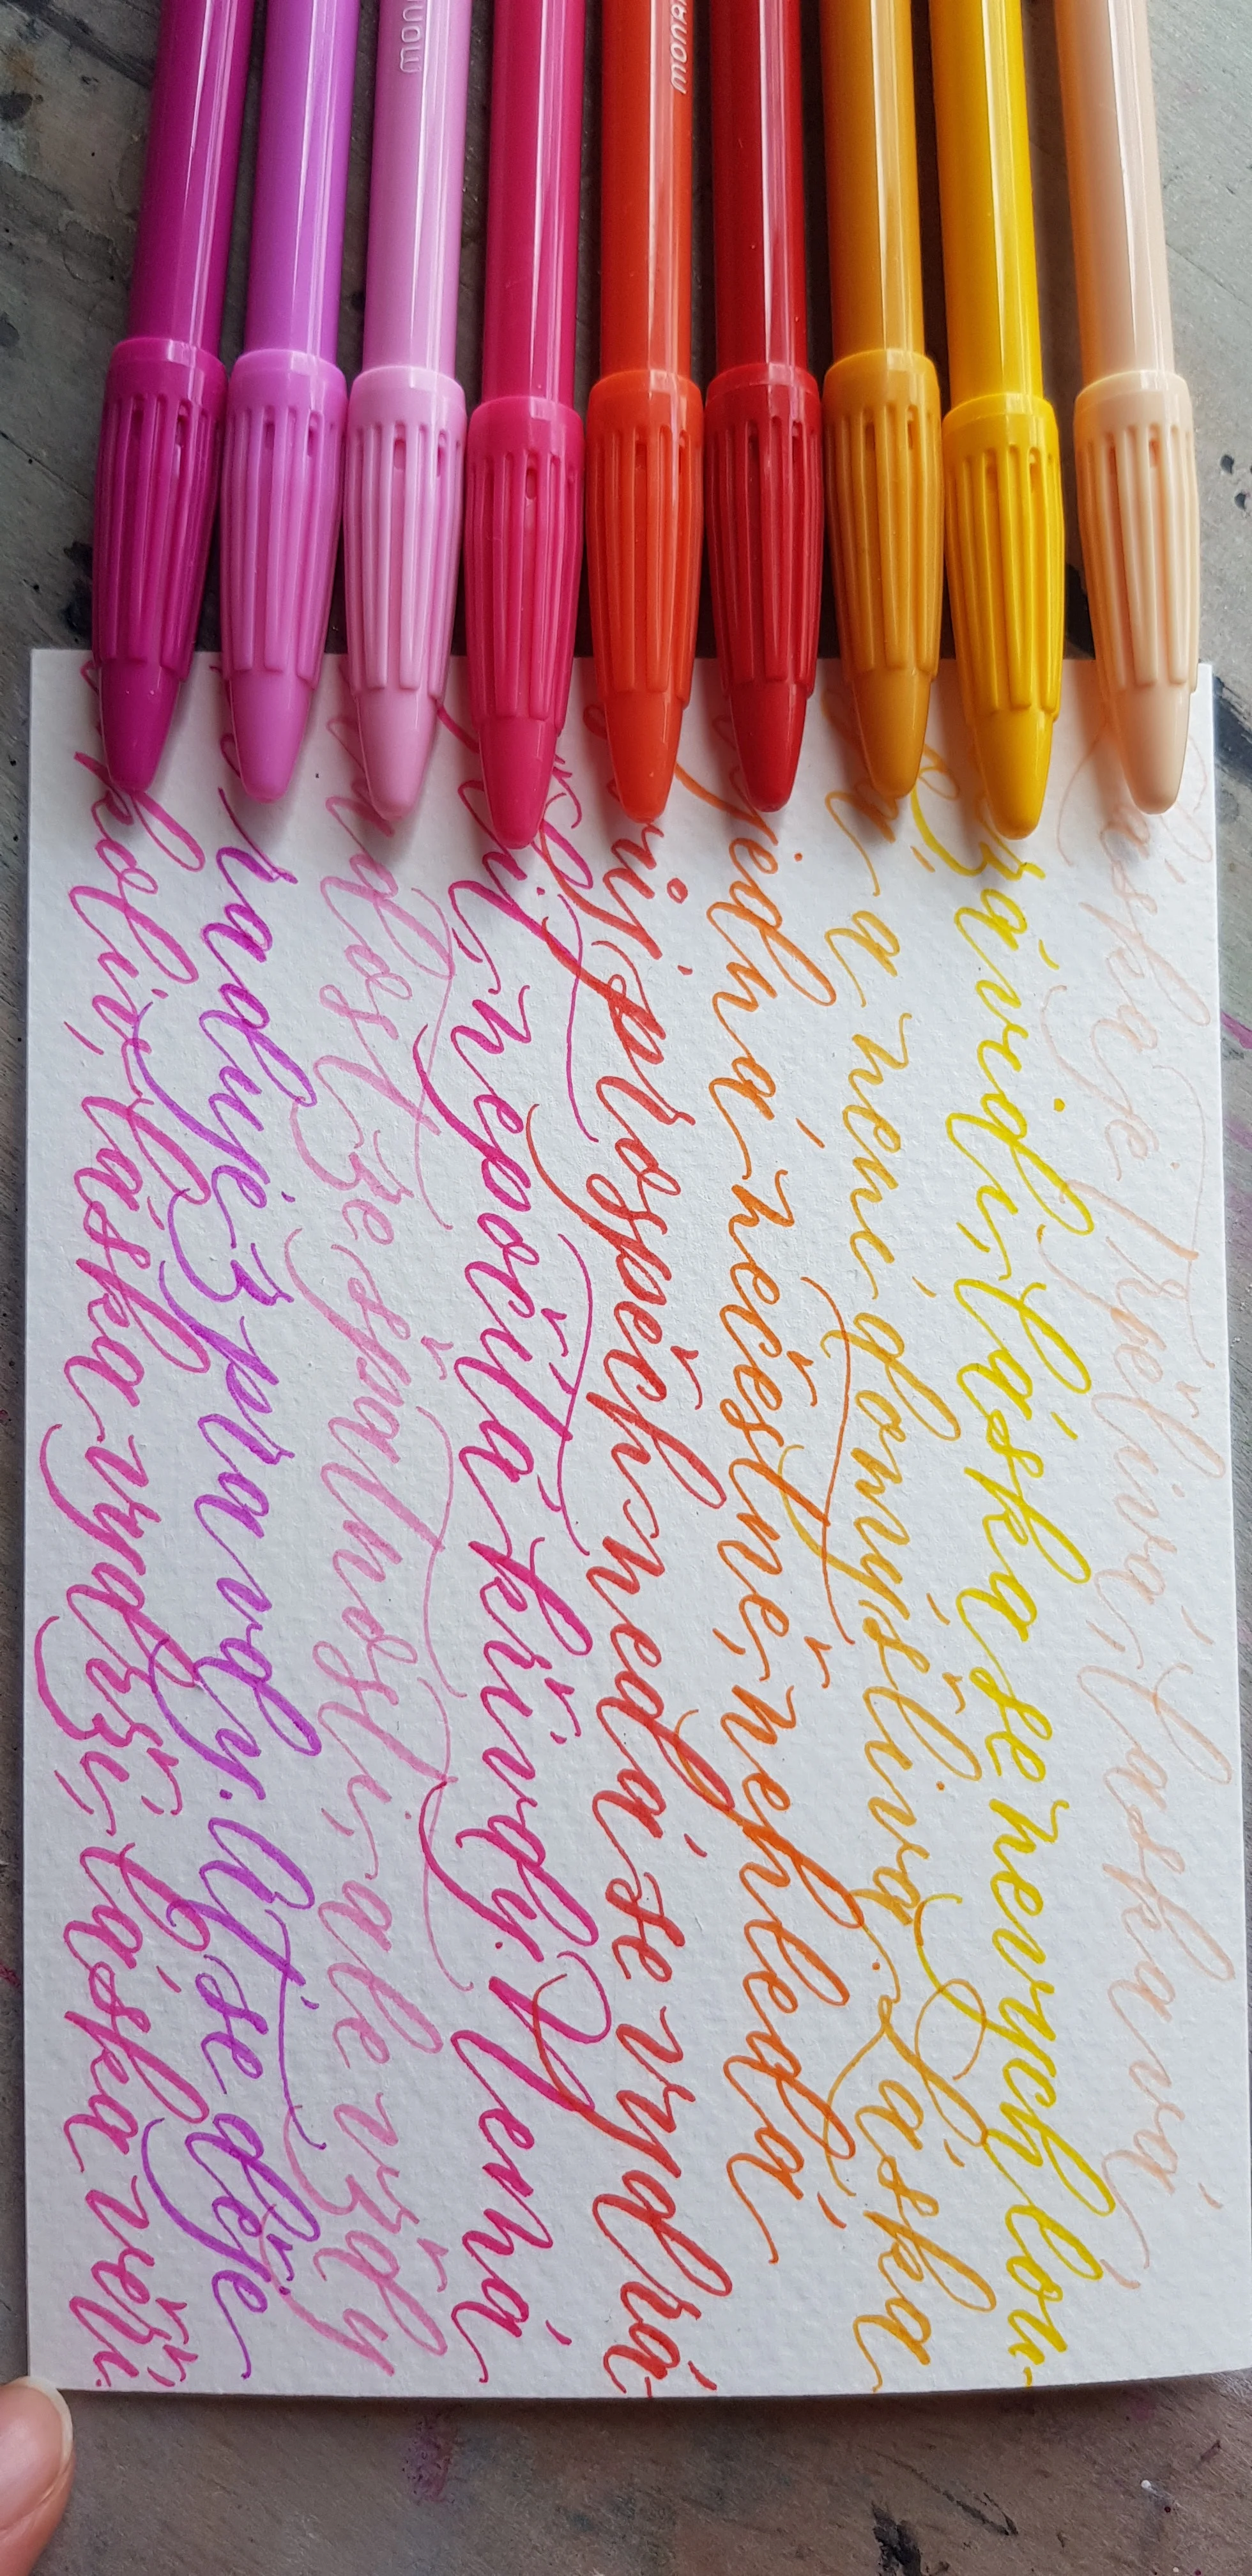 Láska je trpělivá, laskavá
závidí, láska se nevychlou-
a není domýšlivá. Láska
jedná nečestně, nehledá
prospěch, nedá se vydrá-
nepočítá křivdy. Nemá
ze špatnosti, ale vždy
raduje z pravdy. Ať se děje
láska vydrží, láska věří